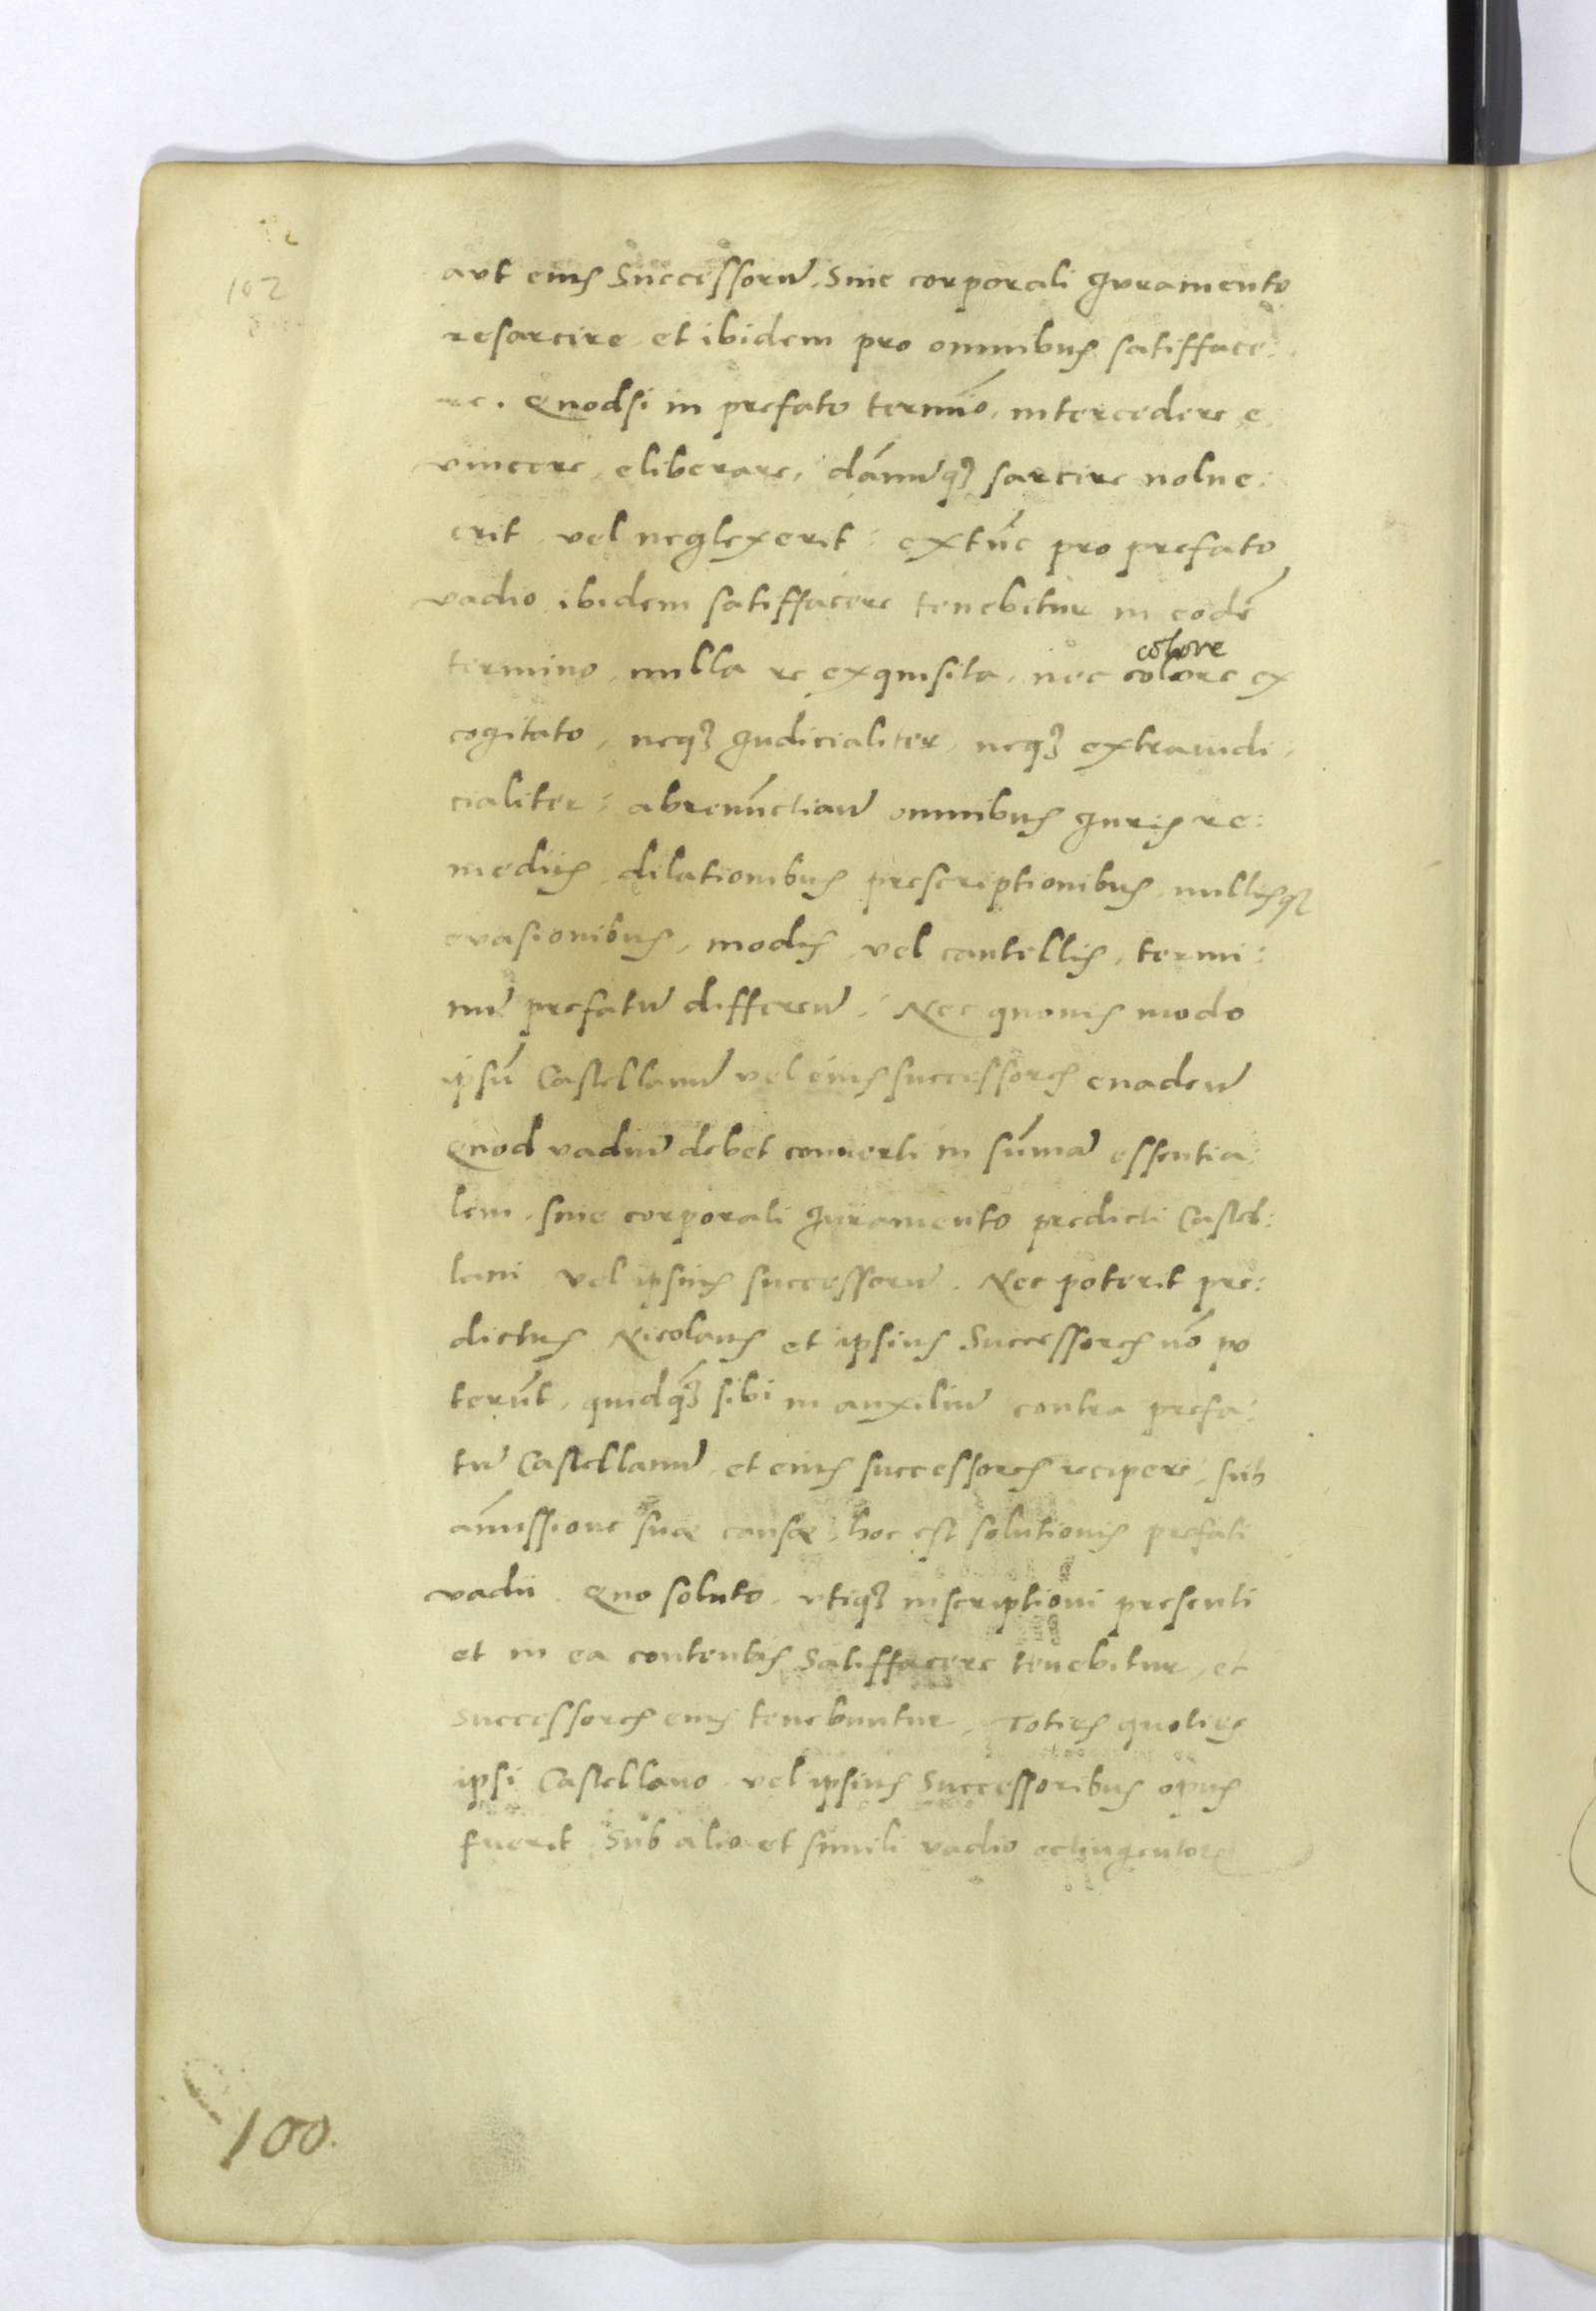 102
aut eius Successorũ. Sine corporali Juramento
resarcire et ibidem pro omnibus satisface:
re. Quodsi in prefato termĩo, intercedere e
vincere, eliberare, dãnũq3 sarcire nolue:
erit vel neglexerit: extũc pro prefato
vadio ibidem satisfacere tenebitur in eodẽ
colore
termino, nulla re exquisita, nec colore ex
cogitato, neq3 Judicialiter, neq3 extraiudi:
cialiter: abrenũctiaño omnibus Juris re:
mediis, dilationibus prescriptionibus, nullisq3
evasionibus, modis, vel cautellis, termi:
nũ prefatũ differeñ. Nec quouis modo
ipsũ Castellanũ vel eius successores euadeñ
Quod vadiũ debet conuerti in sũmã essentia:
lem, sine corporali Juramento predicti Castel:
lani vel ipsius successorũ. Nec poterit pre:
dictus Nicolaus et ipsius Successores nõ po
terũt, quidq̃3 sibi in auxiliũ contra prefa:
tũ Castellanũ et eius successores recipere, sub
ãmissione suæ causæ, hoc est solutionis prefati
vadii. Quo soluto, utiq3 inscriptioni presenti
et in ea contentis Satisfacere tenebitur, et
Successores eius tenebuntur, Toties quoties
ipsi Castellano vel ipsius Successoribus opus
fuerit, Sub alio et simili vadio octingentorũ
100.